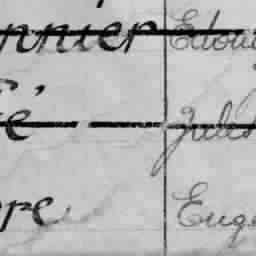 nnier Edou
é Jules
re Eugè